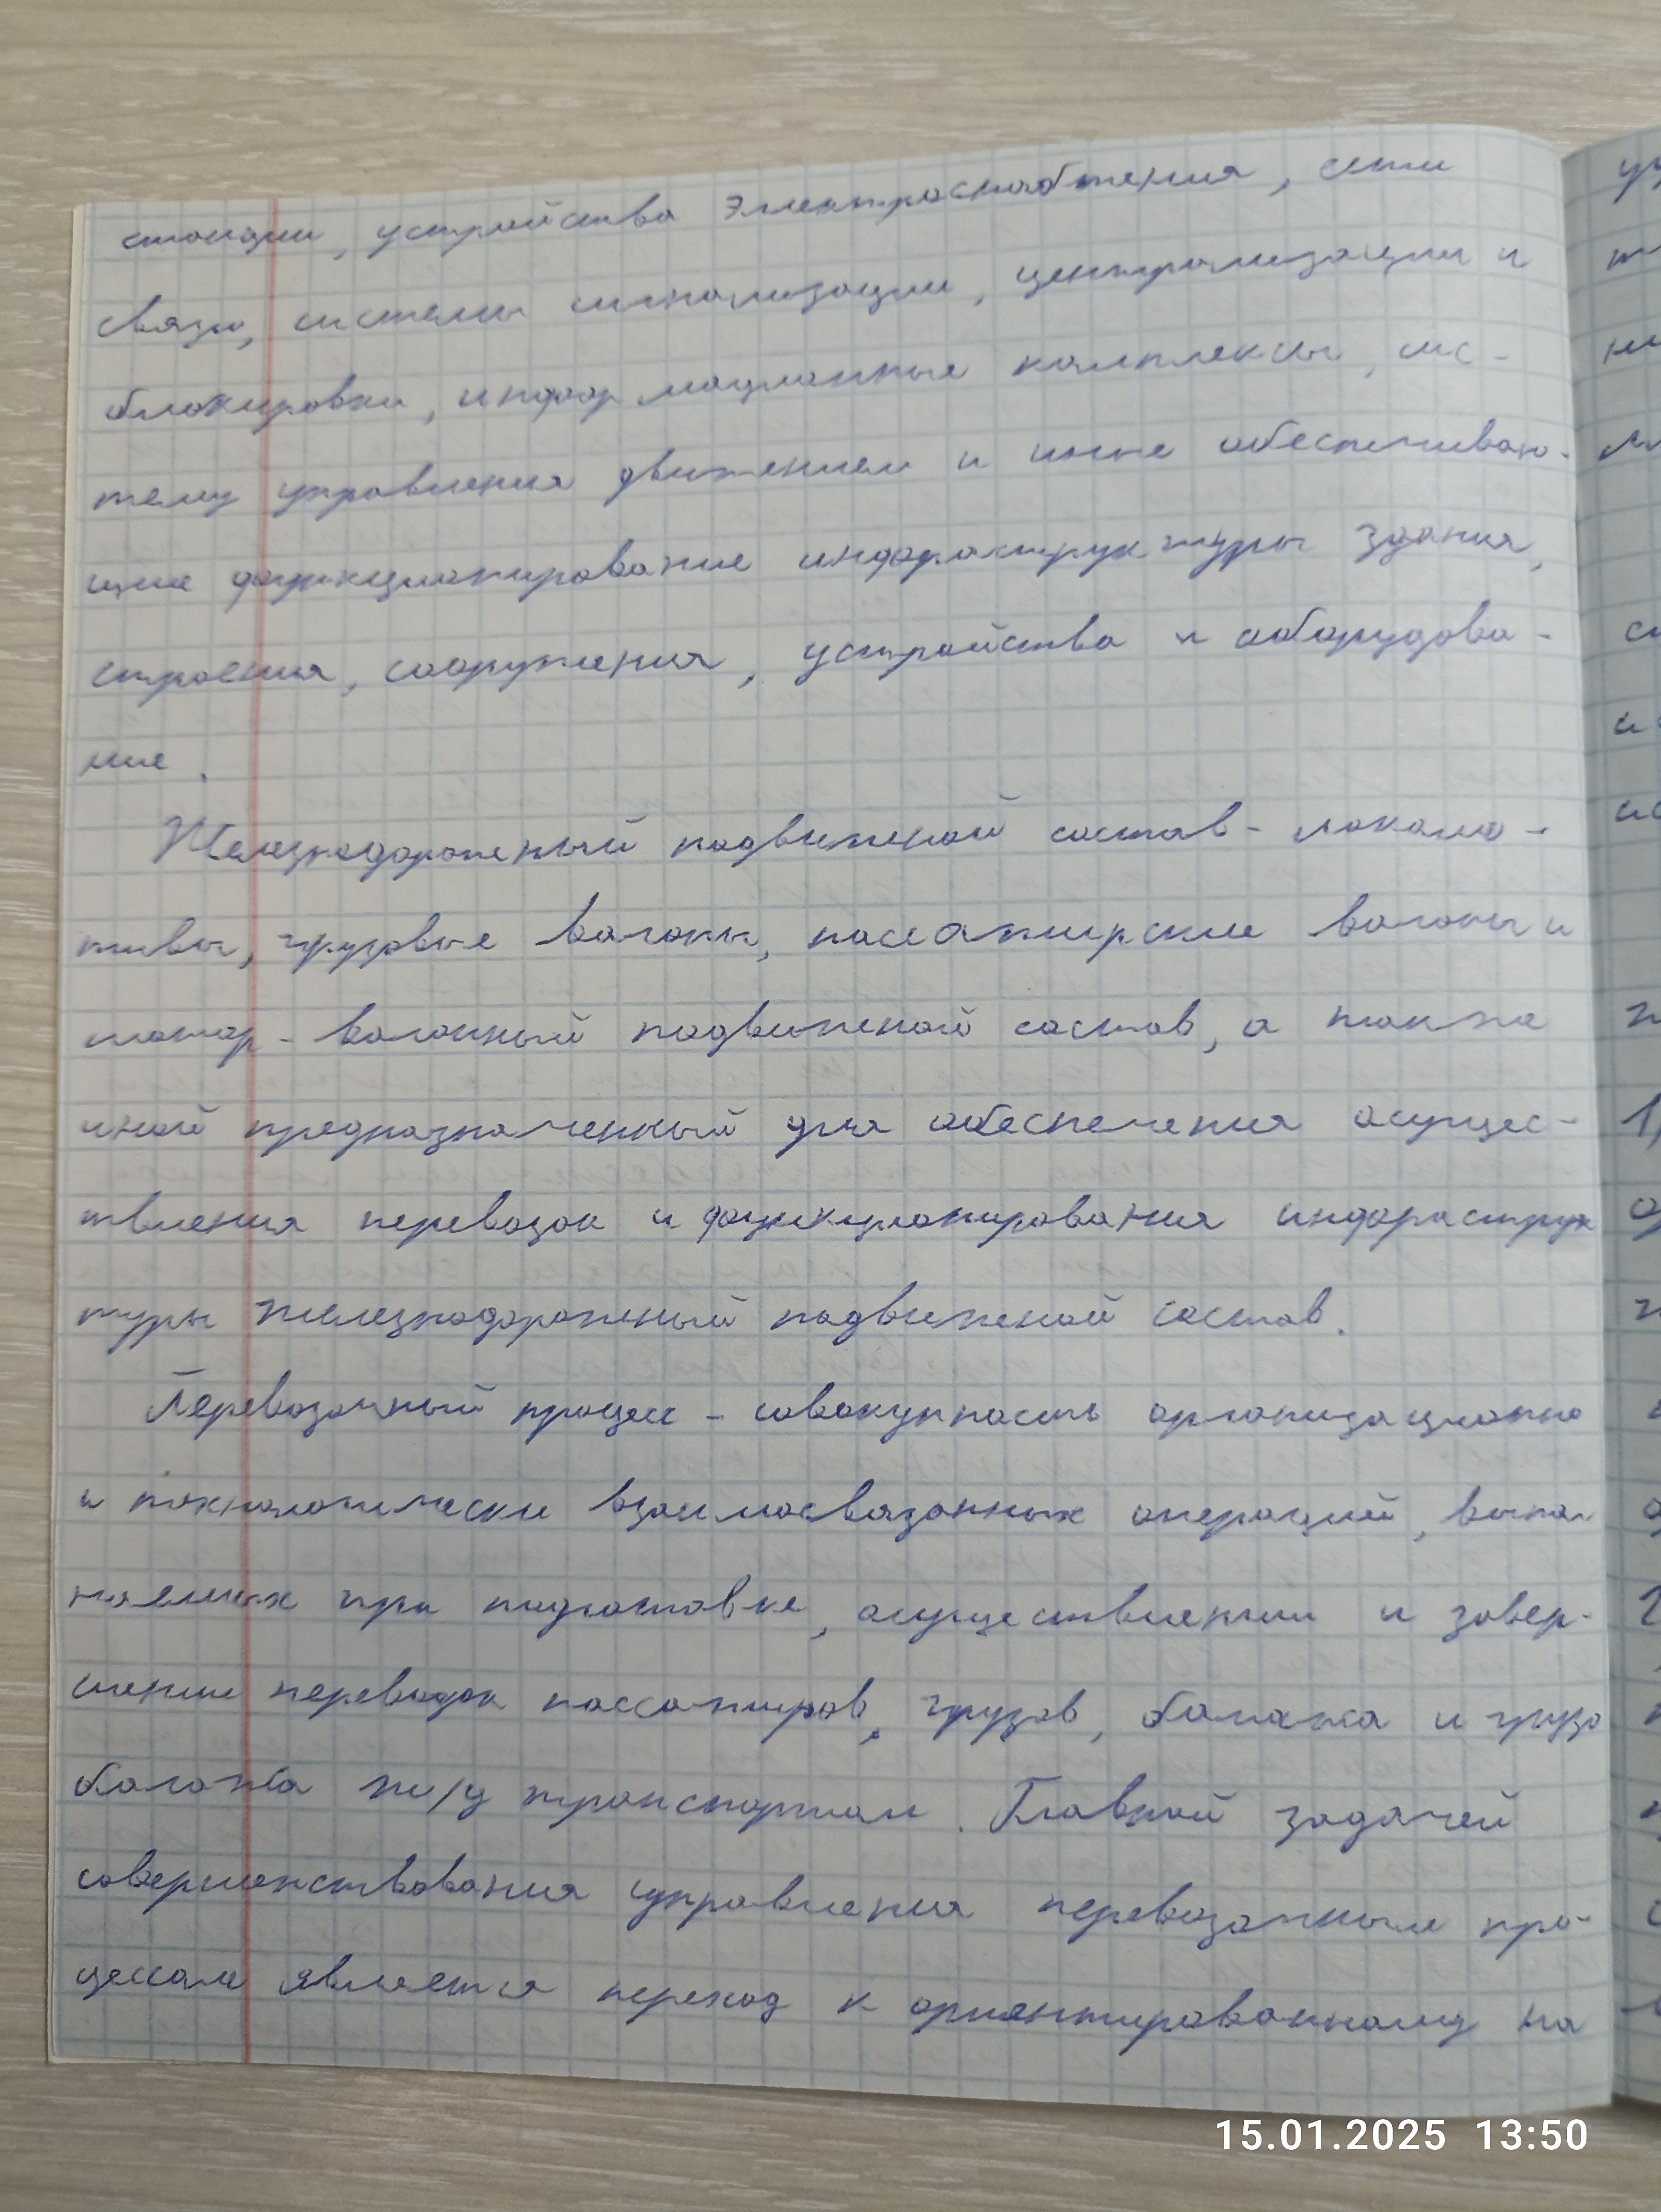 станции, устройства электроснабжения, сети
связи, системы сигнализации, централизации и
блокировки, информационные комплексы, сис-
тему управления движением и иные обеспечиваю-
щие функционирование инфраструктуры здания,
строения, сооружения, устройства и оборудова-
ние.
Железнодорожный подвижной состав - локомо-
тивы, грузовые вагоны, пассажирские вагоны и
мотор-вагонный подвижной состав, а также
иной предназначенный для обеспечения осущес-
твления перевозок и функционирования инфраструк
туры железнодорожный подвижной состав.
Перевозочный процесс - совокупность организационно
и технологически взаимосвязанных операций, выпол
няемых при подготовке, осуществлении и завер-
шении перевозок пассажиров, грузов, багажа и грузо
багажа ж/д транспортом. Главной задачей
совершенствования управления перевозочным про-
цессом является переход к ориентированному на
15.01.2025 13:50